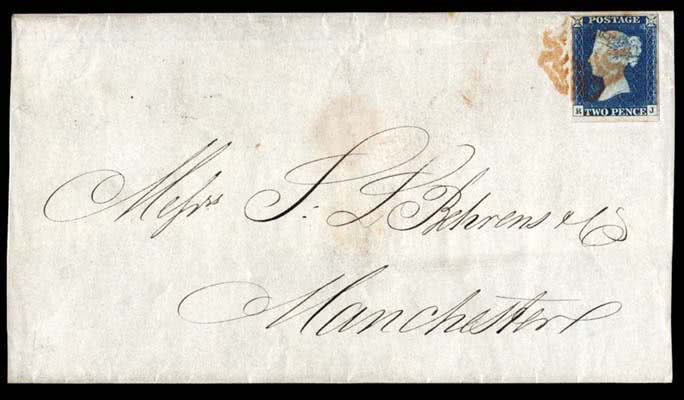 POSTAGE
TWO PENCE J
Messrs S: L Behrens & Co
Manchester